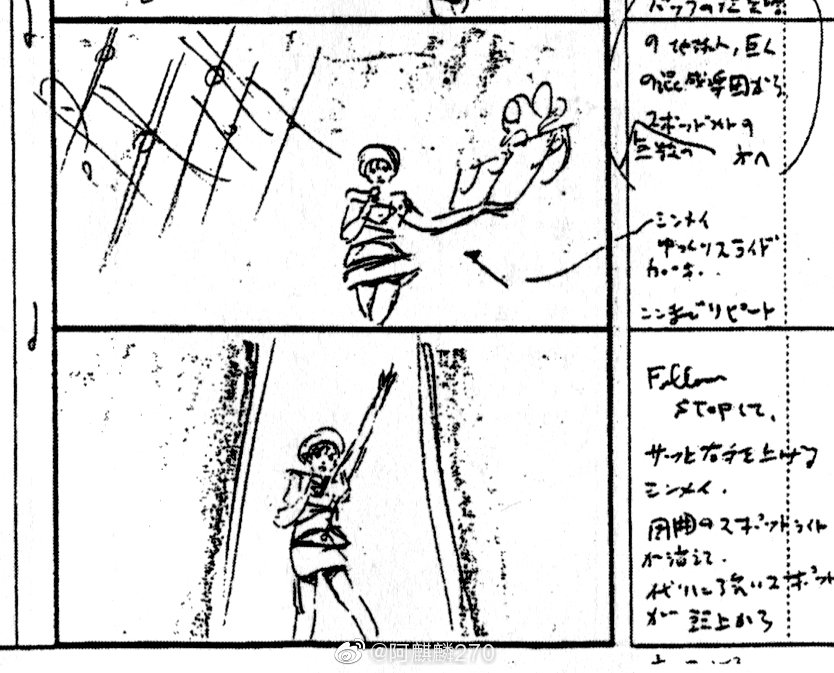 の地球人,巨人
スポットライトの
ミンメイ
ゆっくりスライド
ここまでリピート
Follow
STOPして、
サッと右手を上げる
ミンメイ.
周囲のスポットライト
が消えて.
代りに強いスポット
が 頭上から
@阿麒麟270